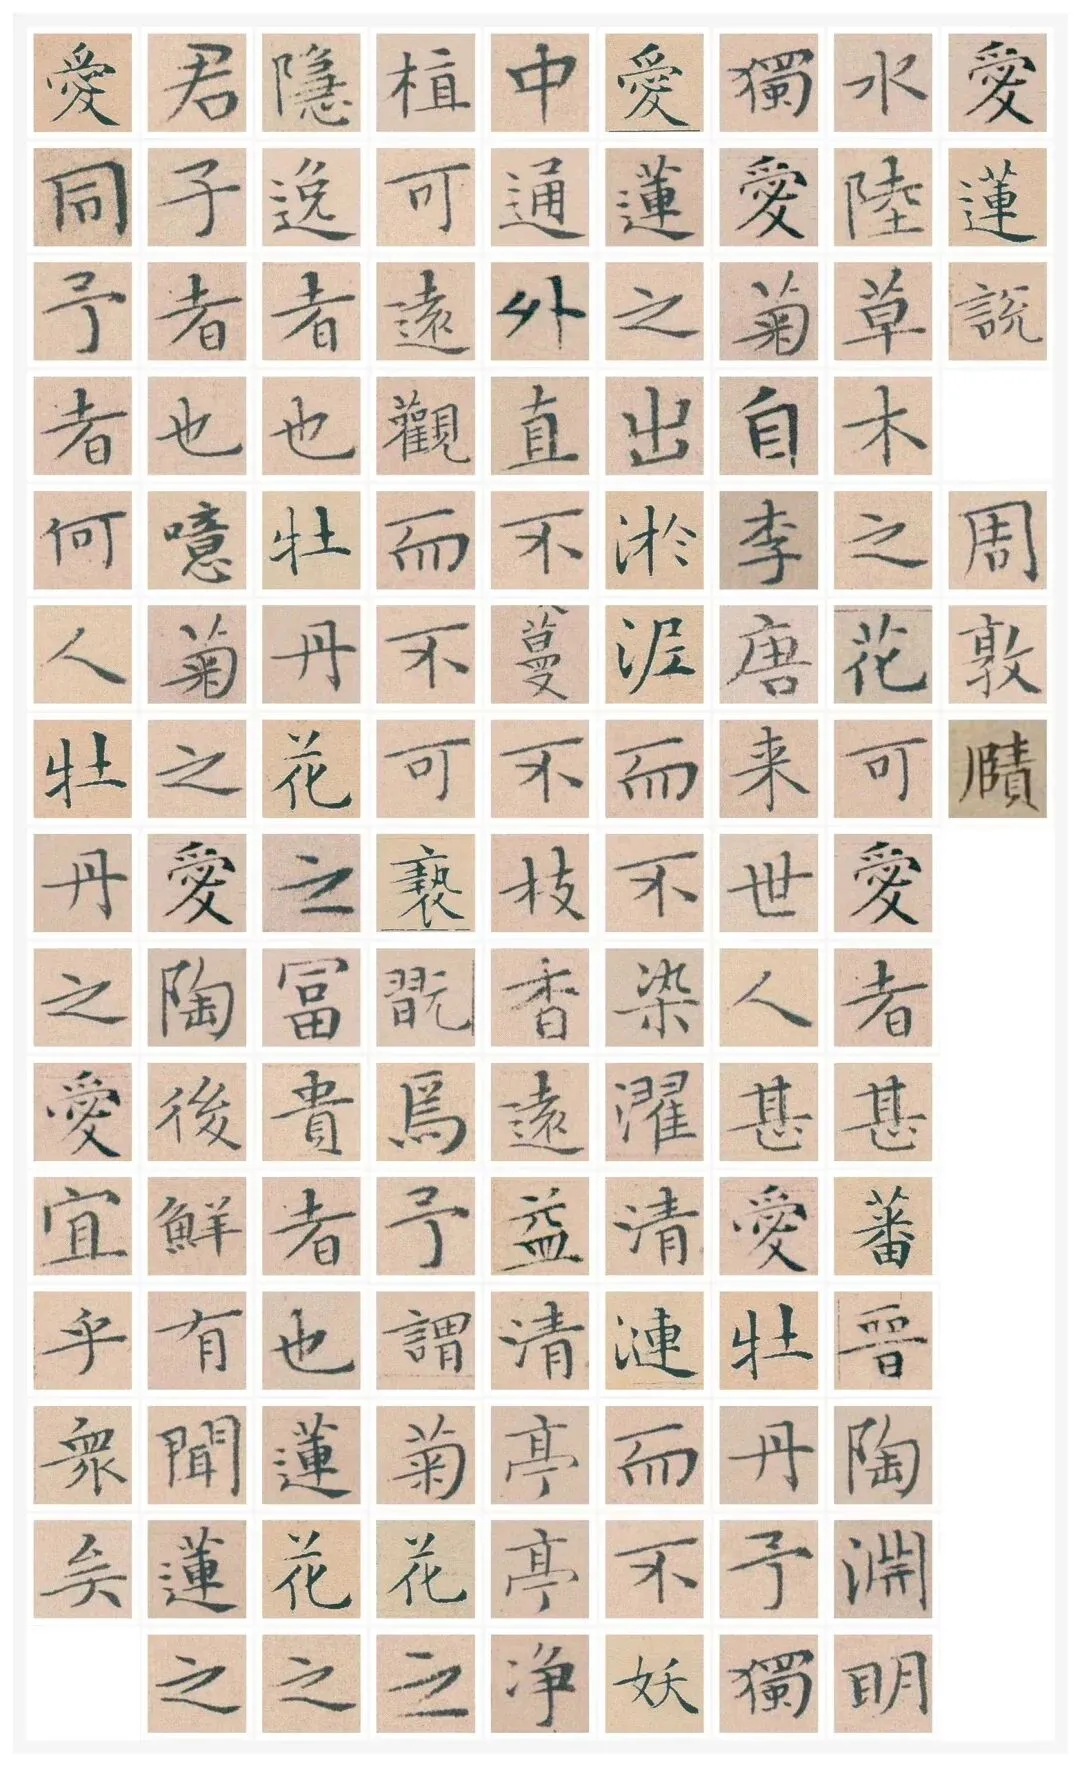 愛蓮說 周敦賾
水陸草木之花可愛者甚蕃晉陶淵明
獨愛菊自李唐来世人甚愛牡丹予獨
愛蓮之出淤泥而不染濯清漣而不妖
中通外直不蔓不枝香遠益清亭亭净
植可遠觀而不可褻翫焉予謂菊花之
隱逸者也牡丹花之冨貴者也蓮花之
君子者也噫菊之愛陶後鮮有聞蓮之
愛同予者何人牡丹之愛宜乎衆矣